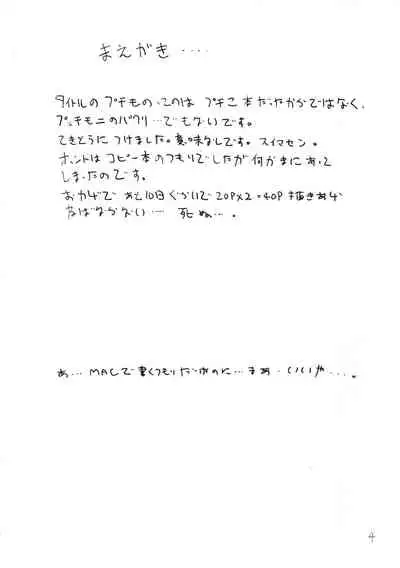 まえがき‥‥
タイトルのプチもの、このは プチこ本だったからではなく、
プッチモニのパクリ…でもないです。
てきとうにつけました。意味なしです。スイマセン。
ホントはコピー本のつもりでしたが何かまにあって
しまったのです。
おかげで あと10日ぐらいで20P×2=40P 描きあげ
なければならない… 死ぬ…。
あ… MACで書くつもりだったのに…まあ・いいや…。
4